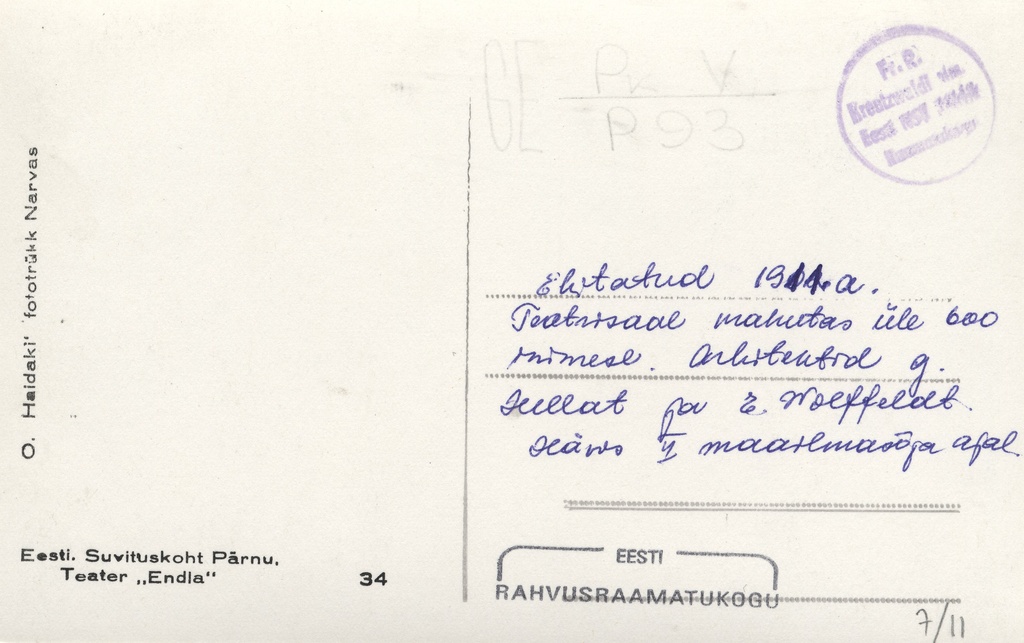 O. Haidaki' fototrükk Narvas
Eesti. Suvituskoht Pärnu.
Teater „Endla“
34
GE
Pk V
P93
Fr. R.
Kreutzwaldi nim.
Eesti NSV Riiklik
Raamatukogu
Ehitatud 1911.a.
Teatrisaal mahutas üle 600
inimese. Arhitektid g.
Hellat ja E. Wolffeldt.
Hävis II maailmasõja ajal
EESTI
RAHVUSRAAMATUKOGU
7/11